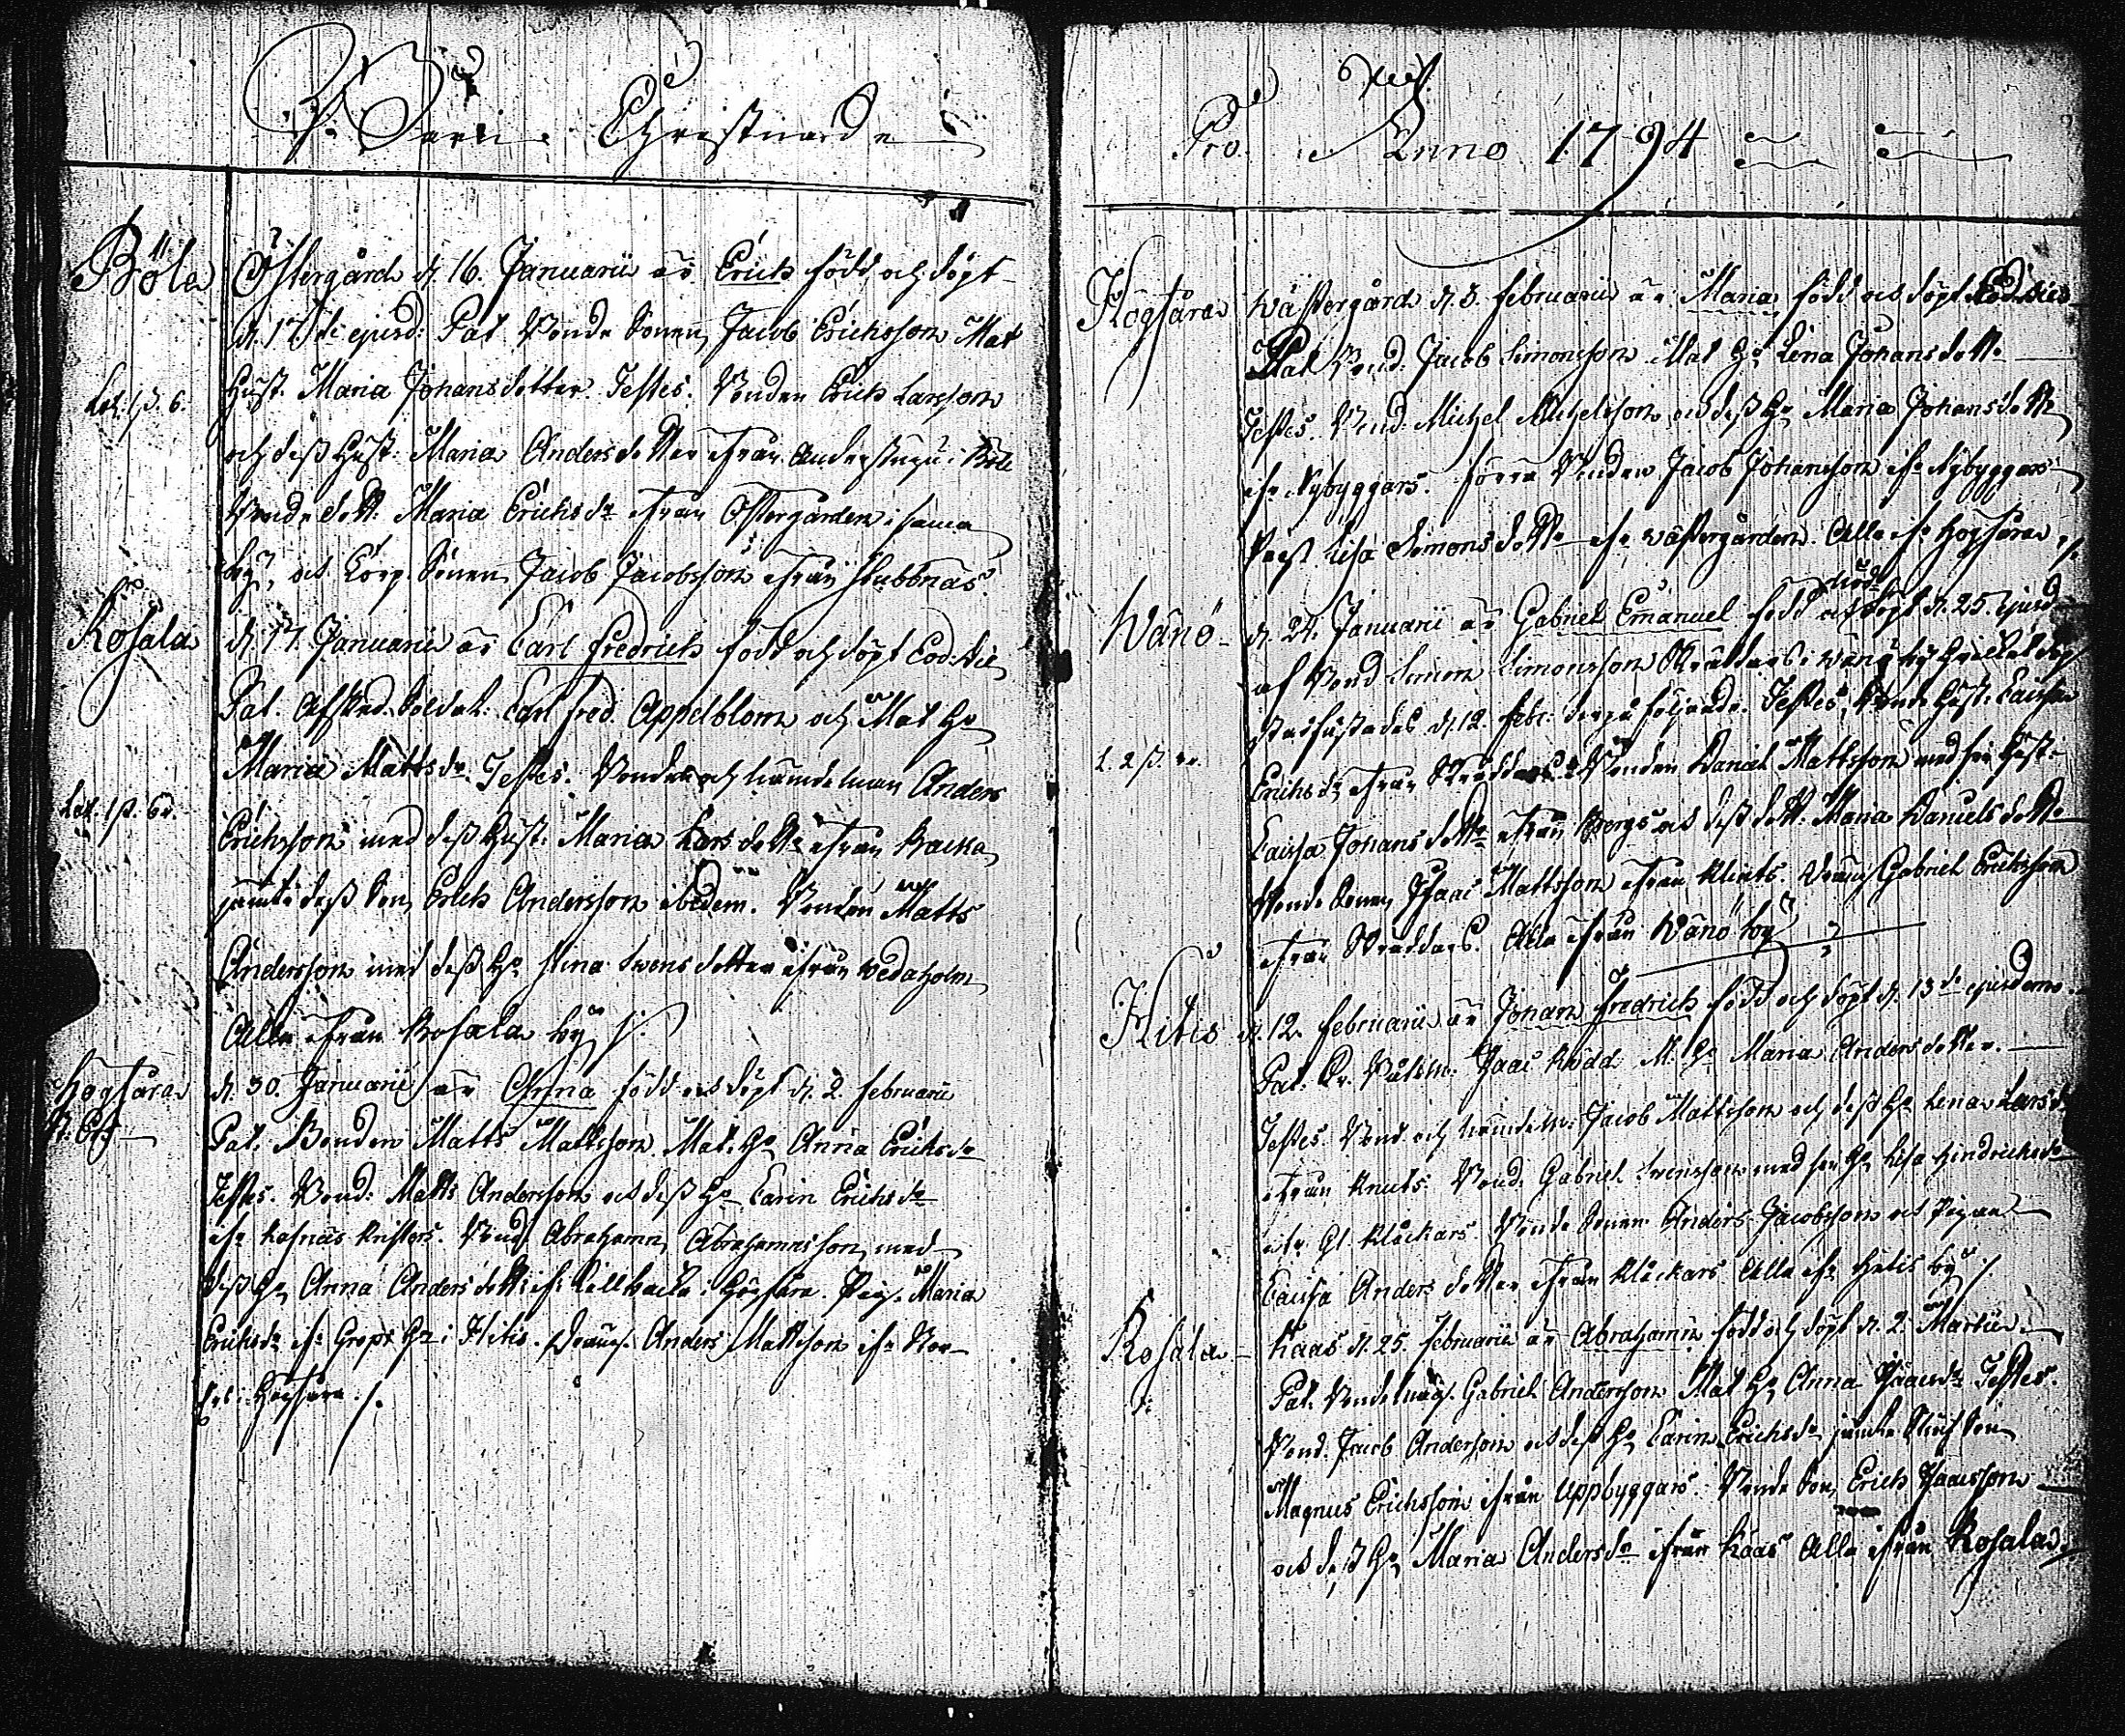 Barn Christnade
Böle Östergård d. 16. Januarii är Erich född och döpt
d. 17de ejusd: Pat Bonde Sonen Jacob Erichsson Mat
Hust. Maria Johansdotter. Testes. Bonden Erich Larsson
och dess Hust: Maria Andersdotter ifrån i Böle
Bonde dott: Maria Erichsdr ifrån Östergården i samma
by, och Corp. Sonen Jacob Jacobsson ifrån Stubbnäs.
Rosala d. 17 Januarii är Carl Fredrich född och döpt Eod: die
Pat. Afsked. Soldat. Carl Fred. Appelblom och Mat Ho
Maria Mattsdr. Testes. Bonden och nämdeman Anders
Erichsson med dess Hust: Maria Larsdottr ifrån Backa
jämte dess Son Erich Andersson ibidem. Bonden Matts
Andersson med dess Ho Stina Svensdotter ifrån Vedaholm
Alla ifrån Rosala by
Högsåra d. 30. Januarii är Anna född och döpt d. 2. februarii
Pat. Bonden Matts Mattsson. Mat. Ho Anna Erichsdr
Testes. Bond: Matts Andersson och dess Ho Carin Erichsdr
ifr Kasnäs. Bond Abrahamn Abrahamnsson med
dess Ho Anna Andersdottr ifr i Högsåra. Pig. Maria
Erichsdr ifr i Hitis. Dräng. Anders Mattsson ifr
Högsåra
Pro Anno 1794
Högsåra Wästergård d. 3. februarii är Maria född och döpt Eod. dies
Pat Bond: Jacob Simonsson Mat Ho Lena Johansdottr
Testes. Bond: Michel Michelsson och dess Ho Maria Johansdottr
ifr Nybyggars. Bonden Jacob Johansson ifr Nybyggars
Lisa Simonsdottr ifr Wästergården. Alla ifr Högsåra
Wänö d. 24. Januarii är Gabriel Emanuel född och döpt d. 25 ejusd
af Bond Simon Simonsson Skräddars i Wänö by
d. 12. febr. följande. Testes, Bonde Hust. Caisa
Erichsdr ifrån Skräddars Bonden Daniel Mattsson med sin Hust.
Caisa Johansdottr ifrån Bergs och dess dott. Maria Danielsdottr
Bonde Sonen Isaac Mattsson ifrån Klints. Dräng Gabriel Erichsson
ifrån Skräddars. Alla ifrån Wänö by
Hitis d. 12. februarii är Johan Fredrich född och döpt d. 13de ejusdem
Pat. Isaac M. Ho Maria Andersdotter.
Testes. Bond. och nämdem: Jacob Mattsson och dess Ho Lena Larsdr
ifrån Knuts. Bond. Gabriel Svensson med sin Ho Lisa Hindrichsdr
ifr Gl. Klåckars. Bonde Sonen Anders Jacobsson och Pigan
Caisa Andersdotter ifrån Klåckars Alla ifr Hitis by
Rosala Kaas d. 25. februarii är Abrahamn född och döpt d. 2 Martii
Pat. Gabriel Andersson Mat Ho Anna Isaacsdr Testes.
Bond. Jacob Andersson och dess Ho Carin Erichsdr jämte Son
Magnus Erichsson ifrån Uppbyggars. Bonde Son Erich Isaacsson
och dess Ho Maria Andersdr ifrån Kaas Alla ifrån Rosala